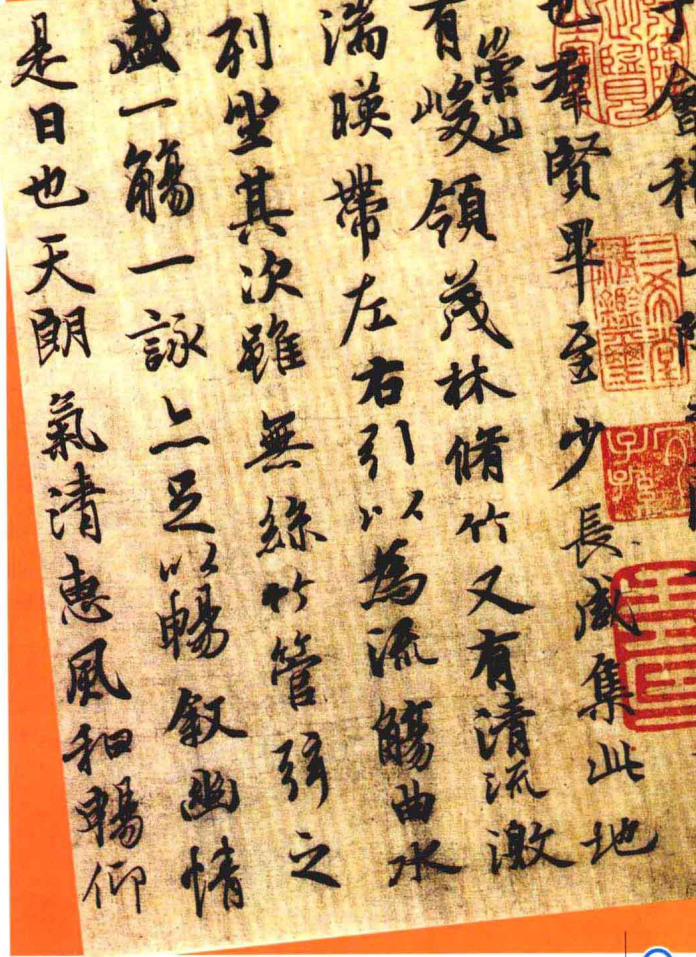 于會稽山陰
也羣賢畢至少長咸集此地
有崇山峻領茂林脩竹又有清流激
湍暎帶左右引以為流觴曲水
列坐其次雖無絲竹管弦之
盛一觴一詠亦足以暢叙幽情
是日也天朗氣清惠風和暢仰